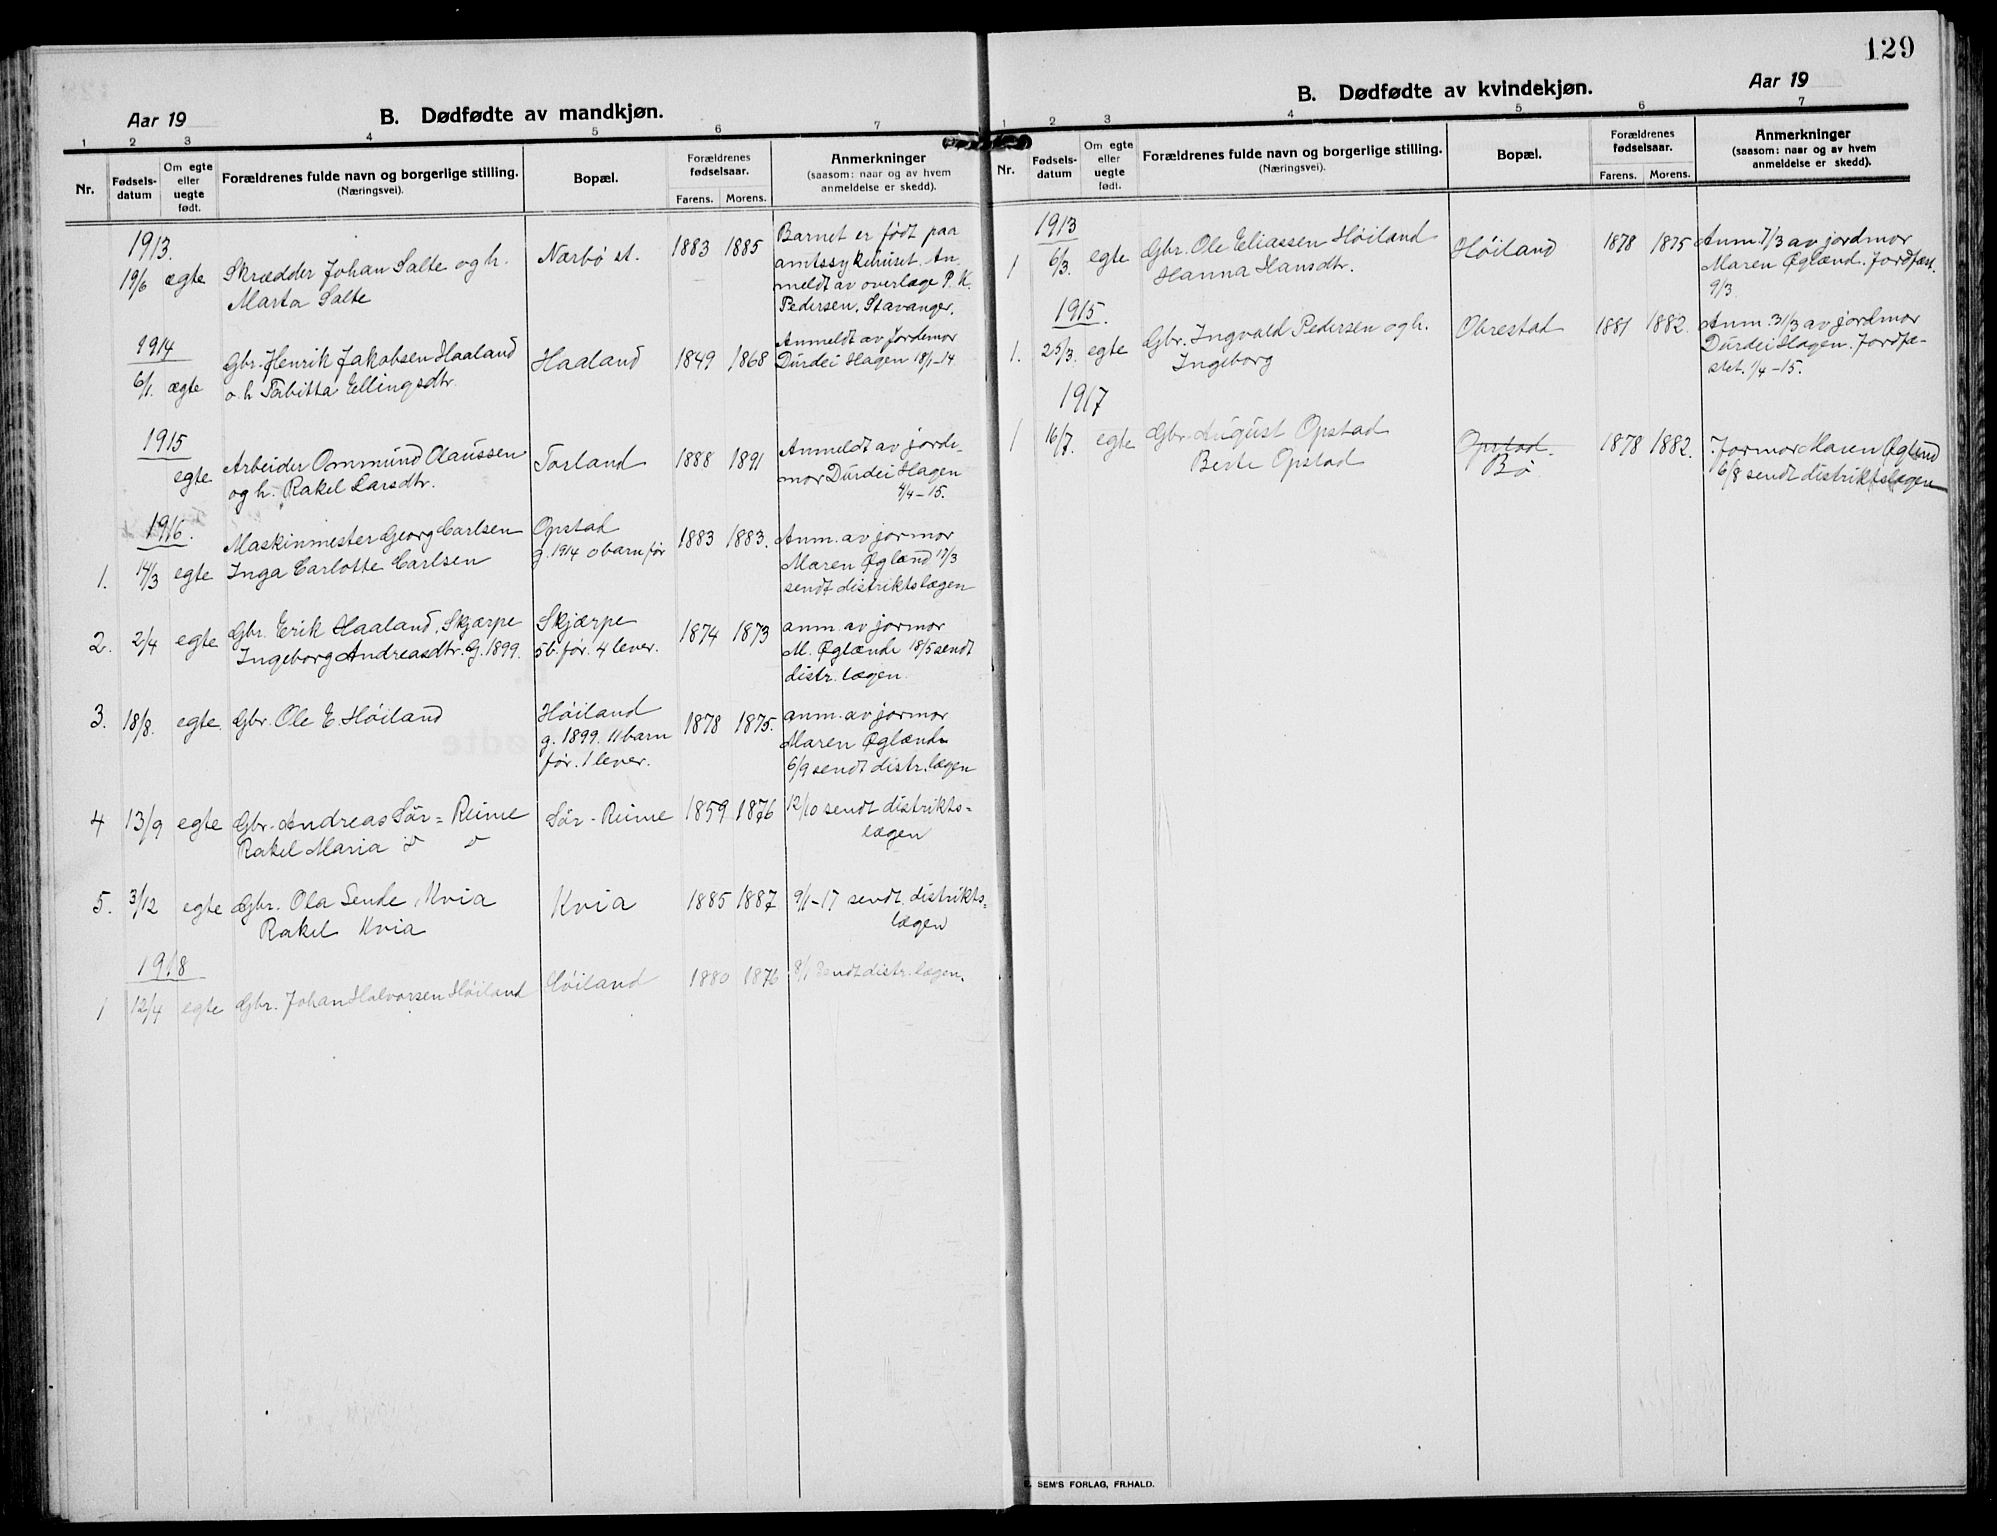 Aar 19
B. Dødfødte av mandkjøn.
1 2 3 4 5 6 7
Nr.
Fødsels-
datum
Om egte
eller
uegte
født.
Forældrenes fulde navn og borgerlige stilling.
(Næringsvei).
Bopæl.
Forældrenes
fødselsaar.
Farens. Morens.
Anmerkninger
(saasom: naar og av hvem
anmeldelse er skedd).
1913.
19/6 ægte Skrædder Johan Salte og h.
Marta Salte
Nærbø st. 1883 1885
Barnet er født paa
amtssykehuset. An-
meldt av overlæge P. K.
Pedersen, Stavanger.
1914
6/1. ægte Gbr. Henrik Jakobsen Haaland
o. h. Tabitta Ellingsdtr.
Haaland 1849 1868
Anmeldt av Jordemor
Durdei Hagen 18/1-14
1915
egte Arbeider Ommund Olaussen
og h. Rakel Larsdtr.
Torland 1888 1891
Anmeldt av jorde-
mor Durdei Hagen
4/4-15.
1916.
1. 14/3 egte Maskinmester Georg Carlsen
Inga Carlotte Carlsen
Opstad
g. 1914 0 barn før
1883 1883.
Anm. av jormor
Maren Øglænd 17/3
sendt distriktslægen
2. 2/4 egte Gbr. Erik Haaland, Skjærpe
Ingeborg Andreasdtr. G. 1899.
Skjærpe
5 b. før. 4 lever.
1874 1873
anm. av jormor
M. Øglænde 18/5 sendt
distr. lægen.
3. 18/8. egte. Gbr. Ole E. Høiland
Høiland
g. 1899. 11 barn
før. 1 lever.
1878 1875.
anm. av jormor
Maren Øglænde
6/9 sendt distr. lægen
4 13/9 egte Gbr. Andreas Sør=Reime
Rakel Maria d d
Sør-Reime 1859 1876
12/10 sendt distrikts=
lægen
5. 3/12 egte Gbr. Ola Sende, Kvia
Rakel Kvia
Kvia 1885 1887
9/1-17 sendt distrikts=
lægen
1918
1 12/4 egte Gbr. Johan Halvorsen Høiland
Høiland 1880 1876
8/1 sendt distr. lægen.
129
Aar 19
B. Dødfødte av kvindekjøn.
1 2 3 4 5 6 7
Nr.
Fødsels-
datum
Om egte
eller
uegte
født.
Forældrenes fulde navn og borgerlige stilling.
(Næringsvei).
Bopæl.
Forældrenes
fødselsaar.
Farens. Morens.
Anmerkninger
(saasom: naar og av hvem
anmeldelse er skedd).
1913
1 6/3. egte Gbr. Ole Eliassen Høiland
Hanna Hansdtr.
Høiland 1878 1875
Anm. 7/3 av jordmor
Maren Øglænd. Jordfæst.
9/3.
1915.
1. 25/3. egte Gbr. Ingvald Pedersen og h.
Ingeborg
Obrestad 1881 1882.
Anm. 31/3 av jordmor
Durdei Hagen. Jordfæ-
stet. 1/4-15.
1917
1 16/7. egte Gbr. August Opstad
Berte Opstad
Opstad.
Bø
1878 1882.
Jormor Maren Øglænd
6/8 sendt distriktslægen
E. SEM'S FORLAG, FR.HALD.